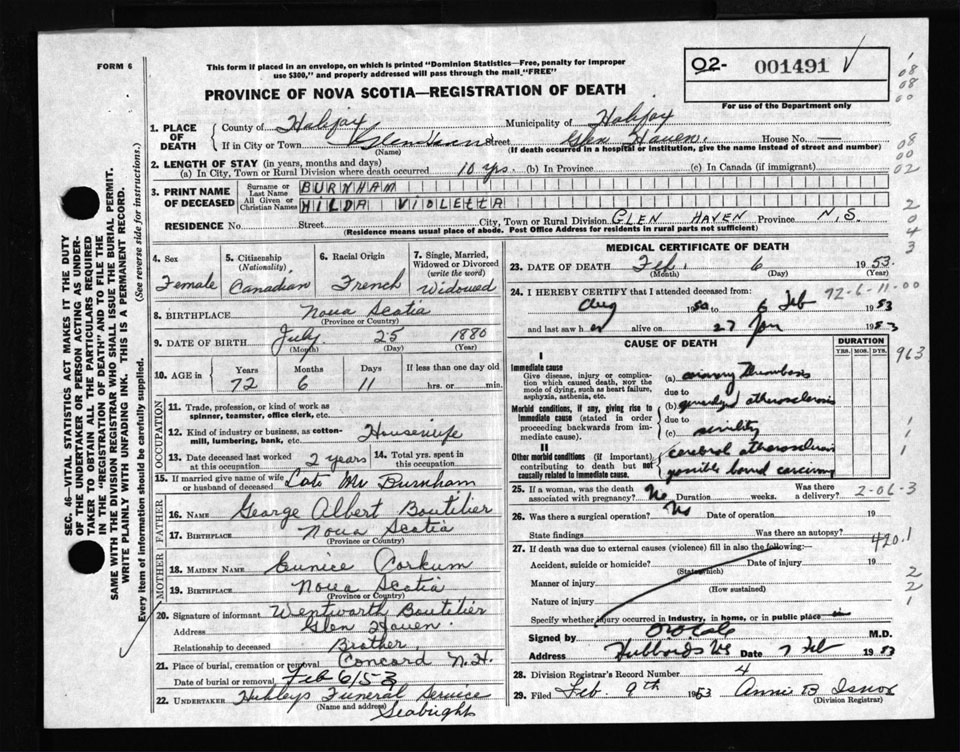 FORM 6
This form if placed in an envelope, on which is printed "Dominion Statistics—Free, penalty for improper
use $300," and properly addressed will pass through the mail "FREE"
PROVINCE OF NOVA SCOTIA—REGISTRATION OF DEATH
02- 001491
For use of the Department only
1. PLACE OF DEATH
County of Halifax Municipality of Halifax
If in City or Town Street Glen Haven. House No. —
(Name) (If death occurred in a hospital or institution, give the name instead of street and number)
2. LENGTH OF STAY (in years, months and days)
(a) In City, Town or Rural Division where death occurred 10 yrs. (b) In Province (c) In Canada (if immigrant)
3. PRINT NAME OF DECEASED
Surname or Last Name BURNHAM
All Given or Christian Names HILDA VIOLETTA
RESIDENCE No. Street City, Town or Rural Division GLEN HAVEN Province N.S.
(Residence means usual place of abode. Post Office Address for residents in rural parts not sufficient)
4. Sex Female
5. Citizenship (Nationality) Canadian
6. Racial Origin French
7. Single, Married, Widowed or Divorced (write the word) Widowed
8. BIRTHPLACE Nova Scotia
(Province or Country)
9. DATE OF BIRTH July 25 1880
(Month) (Day) (Year)
10. AGE in Years Months Days If less than one day old
72 6 11 hrs. or min.
OCCUPATION
11. Trade, profession, or kind of work as
spinner, teamster, office clerk, etc.
12. Kind of industry or business, as cotton-
mill, lumbering, bank, etc. Housewife
13. Date deceased last worked at this occupation 2 years
14. Total yrs. spent in this occupation
15. If married give name of wife or husband of deceased Late Mr Burnham
FATHER
16. NAME George Albert Boutilier
17. BIRTHPLACE Nova Scotia
(Province or Country)
MOTHER
18. MAIDEN NAME Eunice Corkum
19. BIRTHPLACE Nova Scotia
(Province or Country)
20. Signature of informant Wentworth Boutilier
Address Glen Haven.
Relationship to deceased Brother
21. Place of burial, cremation or removal Concord N.H.
Date of burial or removal Feb 6/53
22. UNDERTAKER Hubleys Funeral Service
(Name and address) Seabright
MEDICAL CERTIFICATE OF DEATH
23. DATE OF DEATH Feb. 6 1953.
(Month) (Day) (Year)
24. I HEREBY CERTIFY that I attended deceased from: 72-6-11-00
Aug 1950 to 6 Feb 1953
and last saw her alive on 27 Jan 1953
CAUSE OF DEATH
DURATION
YRS. MOS. DYS.
I
Immediate cause
Give disease, injury or complica-
tion which caused death, NOT the
mode of dying, such as heart failure,
asphyxia, asthenia, etc.
(a) coronary thrombosis
due to
Morbid conditions, if any, giving rise to
immediate cause (stated in order
proceeding backwards from im-
mediate cause).
(b) generalized atherosclerosis
due to
(c) senility
II
Other morbid conditions (if important)
contributing to death but not
causally related to immediate cause.
cerebral atherosclerosis
possible bowel carcinoma
25. If a woman, was the death associated with pregnancy? No Duration weeks. Was there a delivery? 2-06-3
26. Was there a surgical operation? No Date of operation 19
State findings Was there an autopsy?
420.1
27. If death was due to external causes (violence) fill in also the following:—
Accident, suicide or homicide? Date of injury 19
(State which)
Manner of injury
(How sustained)
Nature of injury
Specify whether injury occurred in industry, in home, or in public place
Signed by M.D.
Address Hubbards Date 7 Feb 1953
28. Division Registrar's Record Number 4
29. Filed Feb. 9th 1953 Annie B Isnor
(Division Registrar)
SEC. 46—VITAL STATISTICS ACT MAKES IT THE DUTY
OF THE UNDERTAKER OR PERSON ACTING AS UNDER-
TAKER TO OBTAIN ALL THE PARTICULARS REQUIRED
IN THE "REGISTRATION OF DEATH" AND TO FILE THE
SAME WITH THE DIVISION REGISTRAR WHO SHALL ISSUE THE BURIAL PERMIT.
WRITE PLAINLY WITH UNFADING INK. THIS IS A PERMANENT RECORD.
Every item of information should be carefully supplied. (See reverse side for instructions.)
1
08
08
00
08
00
02
2
0
4
3
963
1
1
1
2
2
1